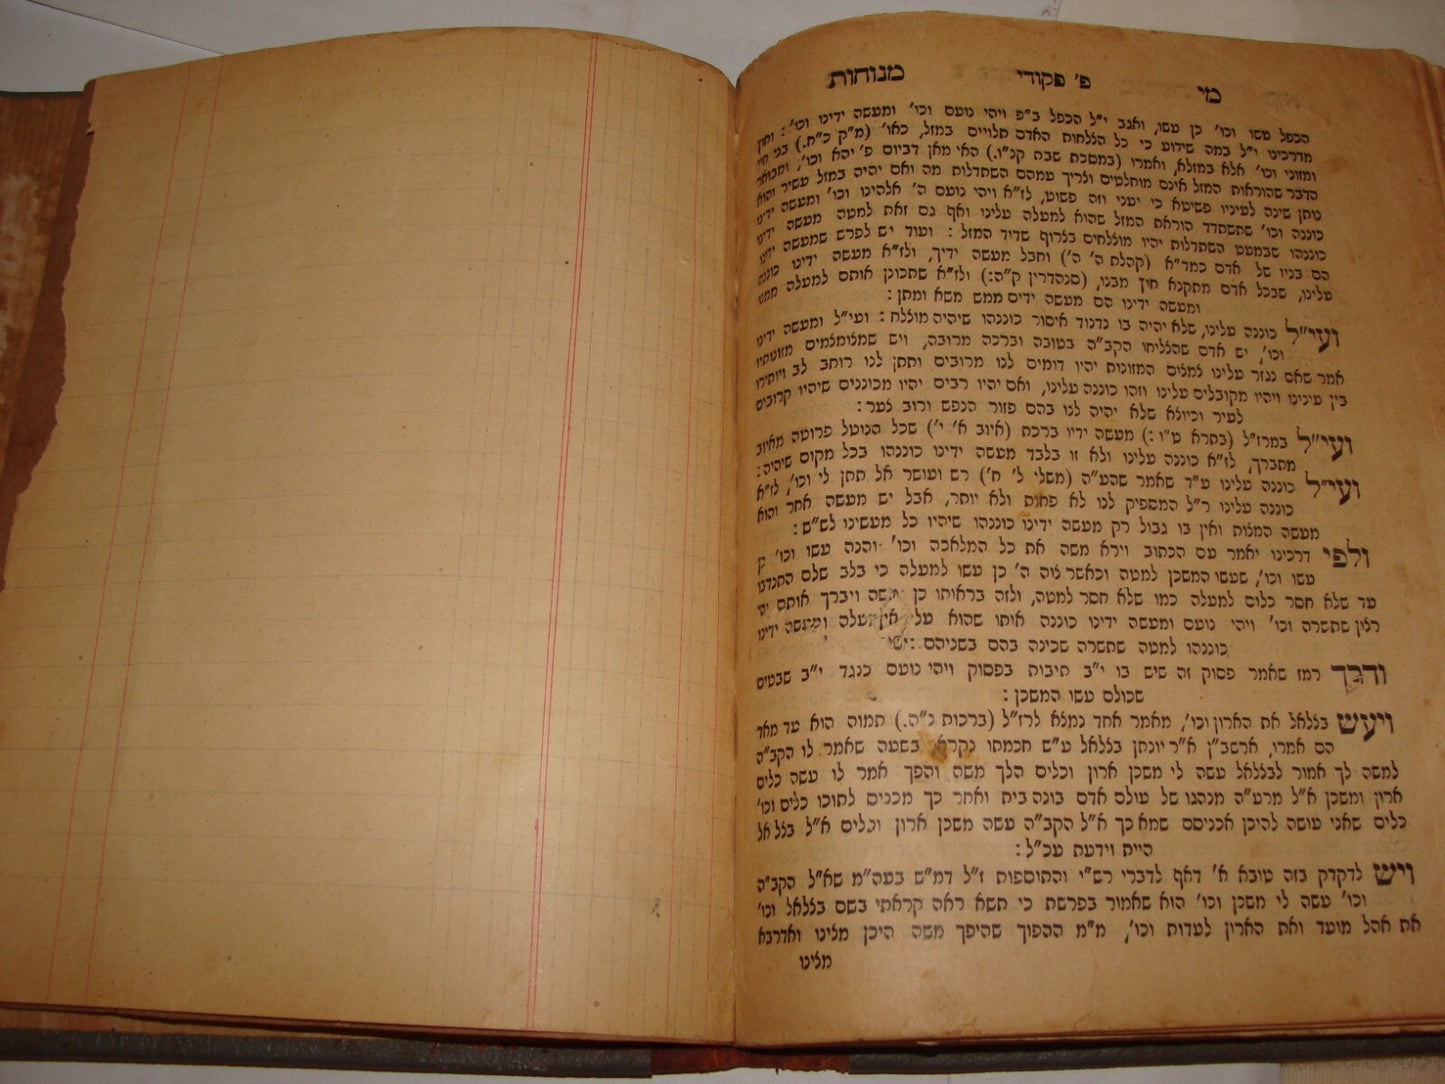 מי פ׳ פקודי מנוחות
הכפל עשו וכו׳ כן עשו, ואגב י״ל הכפל ב״פ ויהי נועם וכו׳ ומעשה ידינו וכו׳ : ונותן
מדרכינו י״ל במה שידוע כי כל הצלחות האדם תלויים במזל, כאו׳ (מ״ק כ״ח.) בני חיי
ומזוני וכו׳ אלא במזלא, ואמרו (במסכת שבת קנ״ו.) האי מאן דביום פ׳ יהא וכו׳, ומבואר
הדבר שהוראות המזל אינם מוחלטים וצריך עמהם השתדלות מה ואם יהיה במזל עשיר והוא
נותן שינה לעיניו פשיטא כי יעני וזה פשוט, לז״א ויהי נועם ה׳ אלהינו וכו׳ ומעשה ידינו
כוננה וכו׳ שתשתדד הוראת המזל שהוא למעלה עלינו ואף גם זאת למטה מעשה ידינו
כוננהו שבמעט השתדלות יהיו מוצלחים בצרוף שדוד המזל : ועוד יש לפרש שמעשה ידינו
הם בניו של אדם כמד״א (קהלת ה׳ ה׳) וחבל מעשה ידיך, ולז״א מעשה ידינו כוננה
עלינו, שבכל אדם מתקנא חוץ מבנו, (סנהדרין ק״ה:) ולז״א שתכונן אותם למעלה ממנו
ומעשה ידינו הם מעשה ידים ממש משא ומתן :
ועי״ל כוננה עלינו, שלא יהיה בו נדנוד איסור כוננהו שיהיה מוצלח : ועי״ל ומעשה ידינו
וכו׳, יש אדם שהצליחו הקב״ה בטובה וברכה מרובה, ויש שמצומצמים מזונותיו
אמר שאם נגזר עלינו צמצום המזונות יהיו דומים לנו מרובים ותתן לנו רוחב לב ויותירו
בין עינינו ויהיו מקובלים עלינו וזהו כוננה עלינו, ואם יהיו רבים יהיו מכוננים שיהיו קרובים
לעיר וכיוצא שלא יהיה לנו בהם פזור הנפש ורוב צער :
ועי״ל במרז״ל (בתרא ט״ו:) מעשה ידיו ברכת (איוב א׳ י׳) שכל הנוטל פרוטה מאיוב
מתברך, לז״א כוננה עלינו ולא זו בלבד מעשה ידינו כוננהו בכל מקום שיהיה :
ועי״ל כוננה עלינו ע״ד שאמר שהע״ה (משלי ל׳ ח׳) רש ועושר אל תתן לי וכו׳, לז״א
כוננה עלינו ר״ל המספיק לנו לא פחות ולא יותר, אבל יש מעשה אחר והוא
מעשה המצות ואין בו גבול רק מעשה ידינו כוננהו שיהיו כל מעשינו לש״ש :
ולפי דרכינו יאמר עם הכתוב וירא משה את כל המלאכה וכו׳ והנה עשו וכו׳ כן
עשו וכו׳, שעשו המשכן למטה וכאשר צוה ה׳ כן עשו למעלה כי בלב שלם התנדבו
עד שלא חסר כלום למעלה כמו שלא חסר למטה, ולזה בראותו כן משה ויברך אותם יהי
רצון שתשרה וכו׳ ויהי נועם ומעשה ידינו כוננה אותו שהוא עלינו למעלה ומעשה ידינו
כוננהו למטה שתשרה שכינה בהם בשניהם :
ודרך רמז שאמר פסוק זה שיש בו י״ב תיבות בפסוק ויהי נועם כנגד י״ב שבטים
שכולם עשו המשכן :
ויעש בצלאל את הארון וכו׳, מאמר אחד נמצא לרז״ל (ברכות נ״ה.) תמוה הוא עד מאד
הם אמרו, ארשב״ן א״ר יונתן בצלאל ע״ש חכמתו נקרא בשעה שאמר לו הקב״ה
למשה לך אמור לבצלאל עשה לי משכן ארון וכלים הלך משה והפך אמר לו עשה כלים
ארון ומשכן א״ל מרע״ה מנהגו של עולם אדם בונה בית ואחר כך מכנים לתוכו כלים וכו׳
כלים שאני עושה להיכן אכניסם שמא כך א״ל הקב״ה עשה משכן ארון וכלים א״ל בצל אל
היית וידעת עכ״ל :
ויש לדקדק בזה טובא א׳ דאף לדברי רש״י והתוספות ז״ל דמ״ש בעה״מ שא״ל הקב״ה
וכו׳ עשה לי משכן וכו׳ הוא שאמור בפרשת כי תשא ראה קראתי בשם בצלאל וכו׳
את אהל מועד ואת הארון לעדות וכו׳, מ״מ ההפוך שהיפך משה היכן מצינו ואדרבא
מצינו